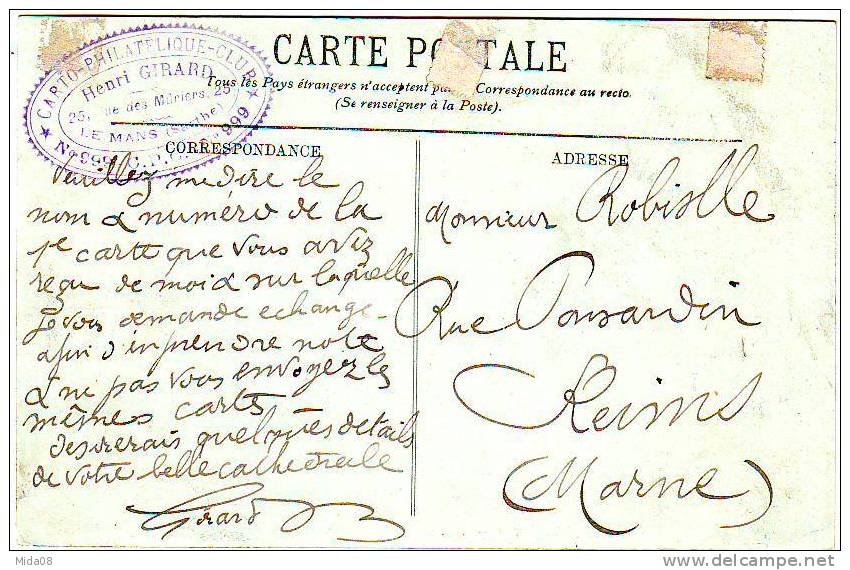 CARTO-PHILATELIQUE-CLUB
Henri GIRARD
25, rue des Mûriers, 25
LE MANS (Sarthe)
No 999 C.P.C. 999
CARTE POSTALE
Tous les Pays étrangers n'acceptent pas la Correspondance au recto.
(Se renseigner à la Poste).
CORRESPONDANCE
Veuillez me dire le
nom & numéro de la
1e carte que vous avez
reçu de moi & sur laquelle
je vous demande echange
afin d'en prendre note
& ne pas vous envoyer les
mêmes cartes
desirerais quelques details
de votre belle cathedrale
Girard
ADRESSE
Monsieur Robiolle
Rue Ponsardin
Reims
(Marne)
Mida08
delcampe.net